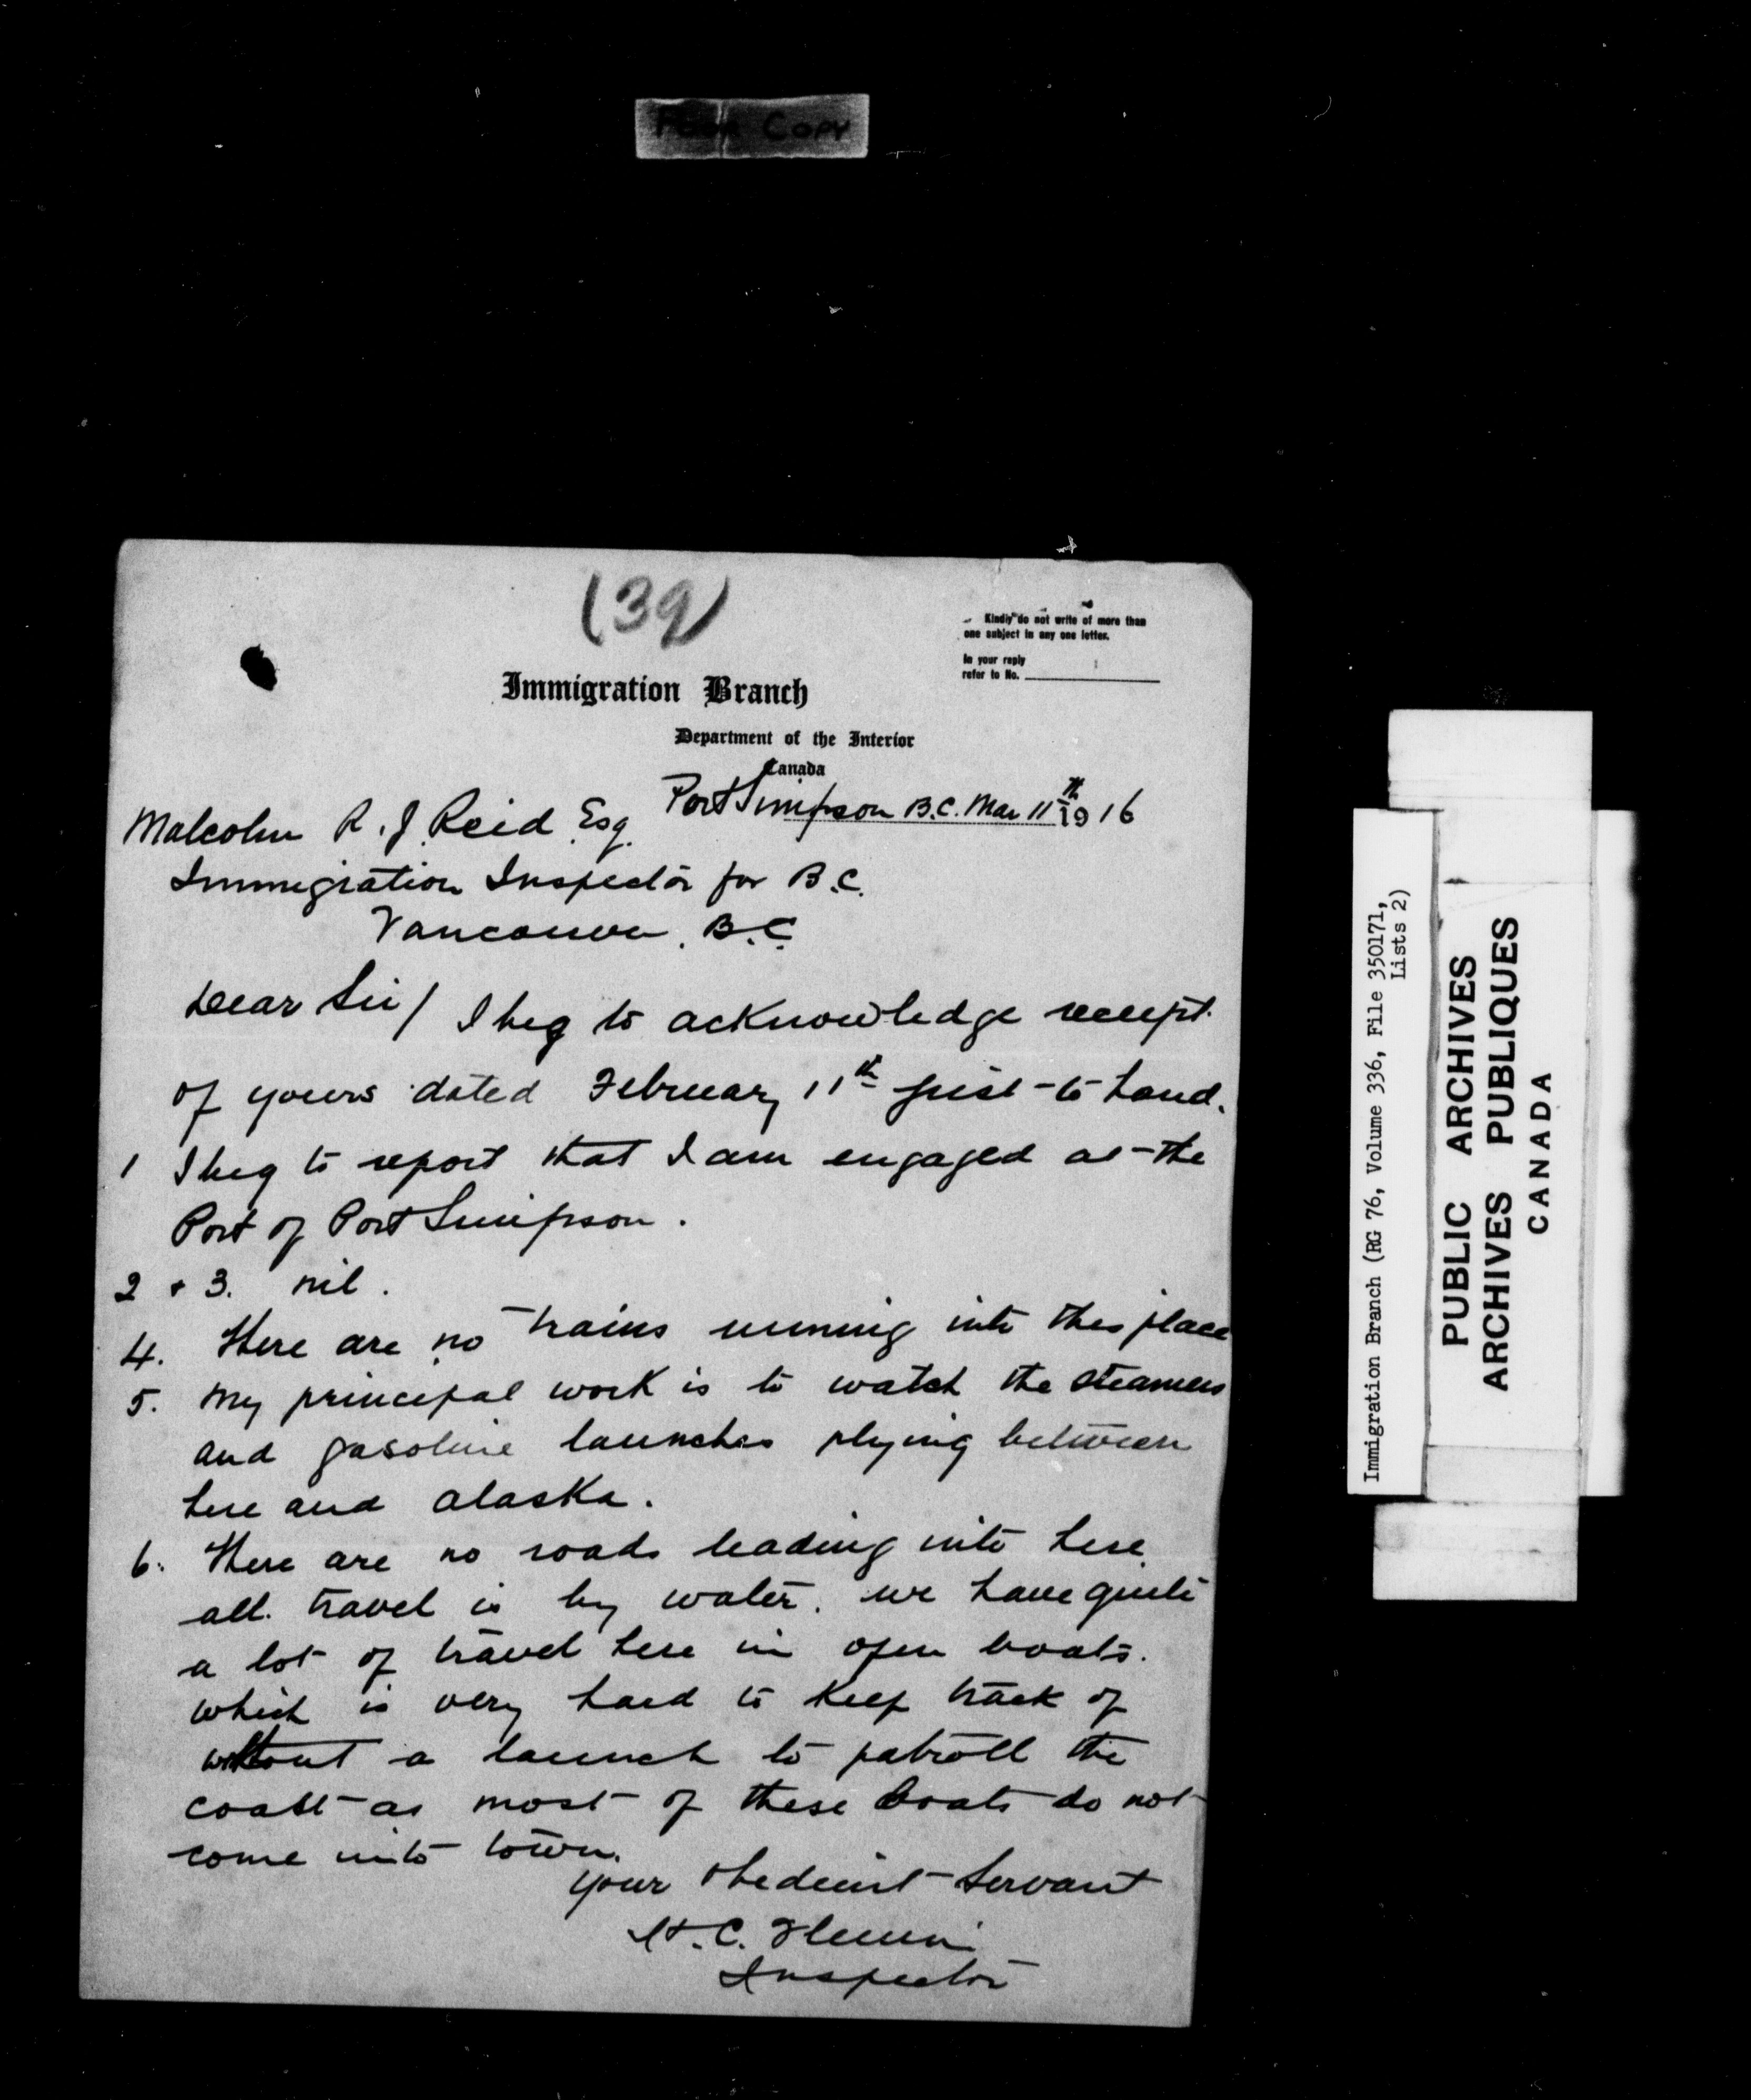 Poor Copy
(39)
Kindly do not write of more than
one subject in any one letter.
In your reply
refer to No.
Immigration Branch
Department of the Interior
Canada
Port Simpson B.C. Mar 11th 1916
Malcolm R. J. Reid Esq.
Immigration Inspector for B.C.
Vancouver. B.C.
Dear Sir/ I beg to acknowledge receipt
of yours dated February 11th just to hand.
1 I beg to report that I am engaged at the
Port of Port Simpson.
2 + 3. nil.
4. There are no trains running into this place
5. My principal work is to watch the steamers
and gasoline launches plying between
here and Alaska.
6. There are no roads leading into here
all travel is by water. we have quite
a lot of travel here in open boats.
which is very hard to keep track of
without a launch to patroll the
coast as most of these boats do not
come into town.
Your obedient Servant
H. C.
Inspector
Immigration Branch (RG 76, Volume 336, File 350171,
Lists 2)
PUBLIC ARCHIVES
ARCHIVES PUBLIQUES
CANADA